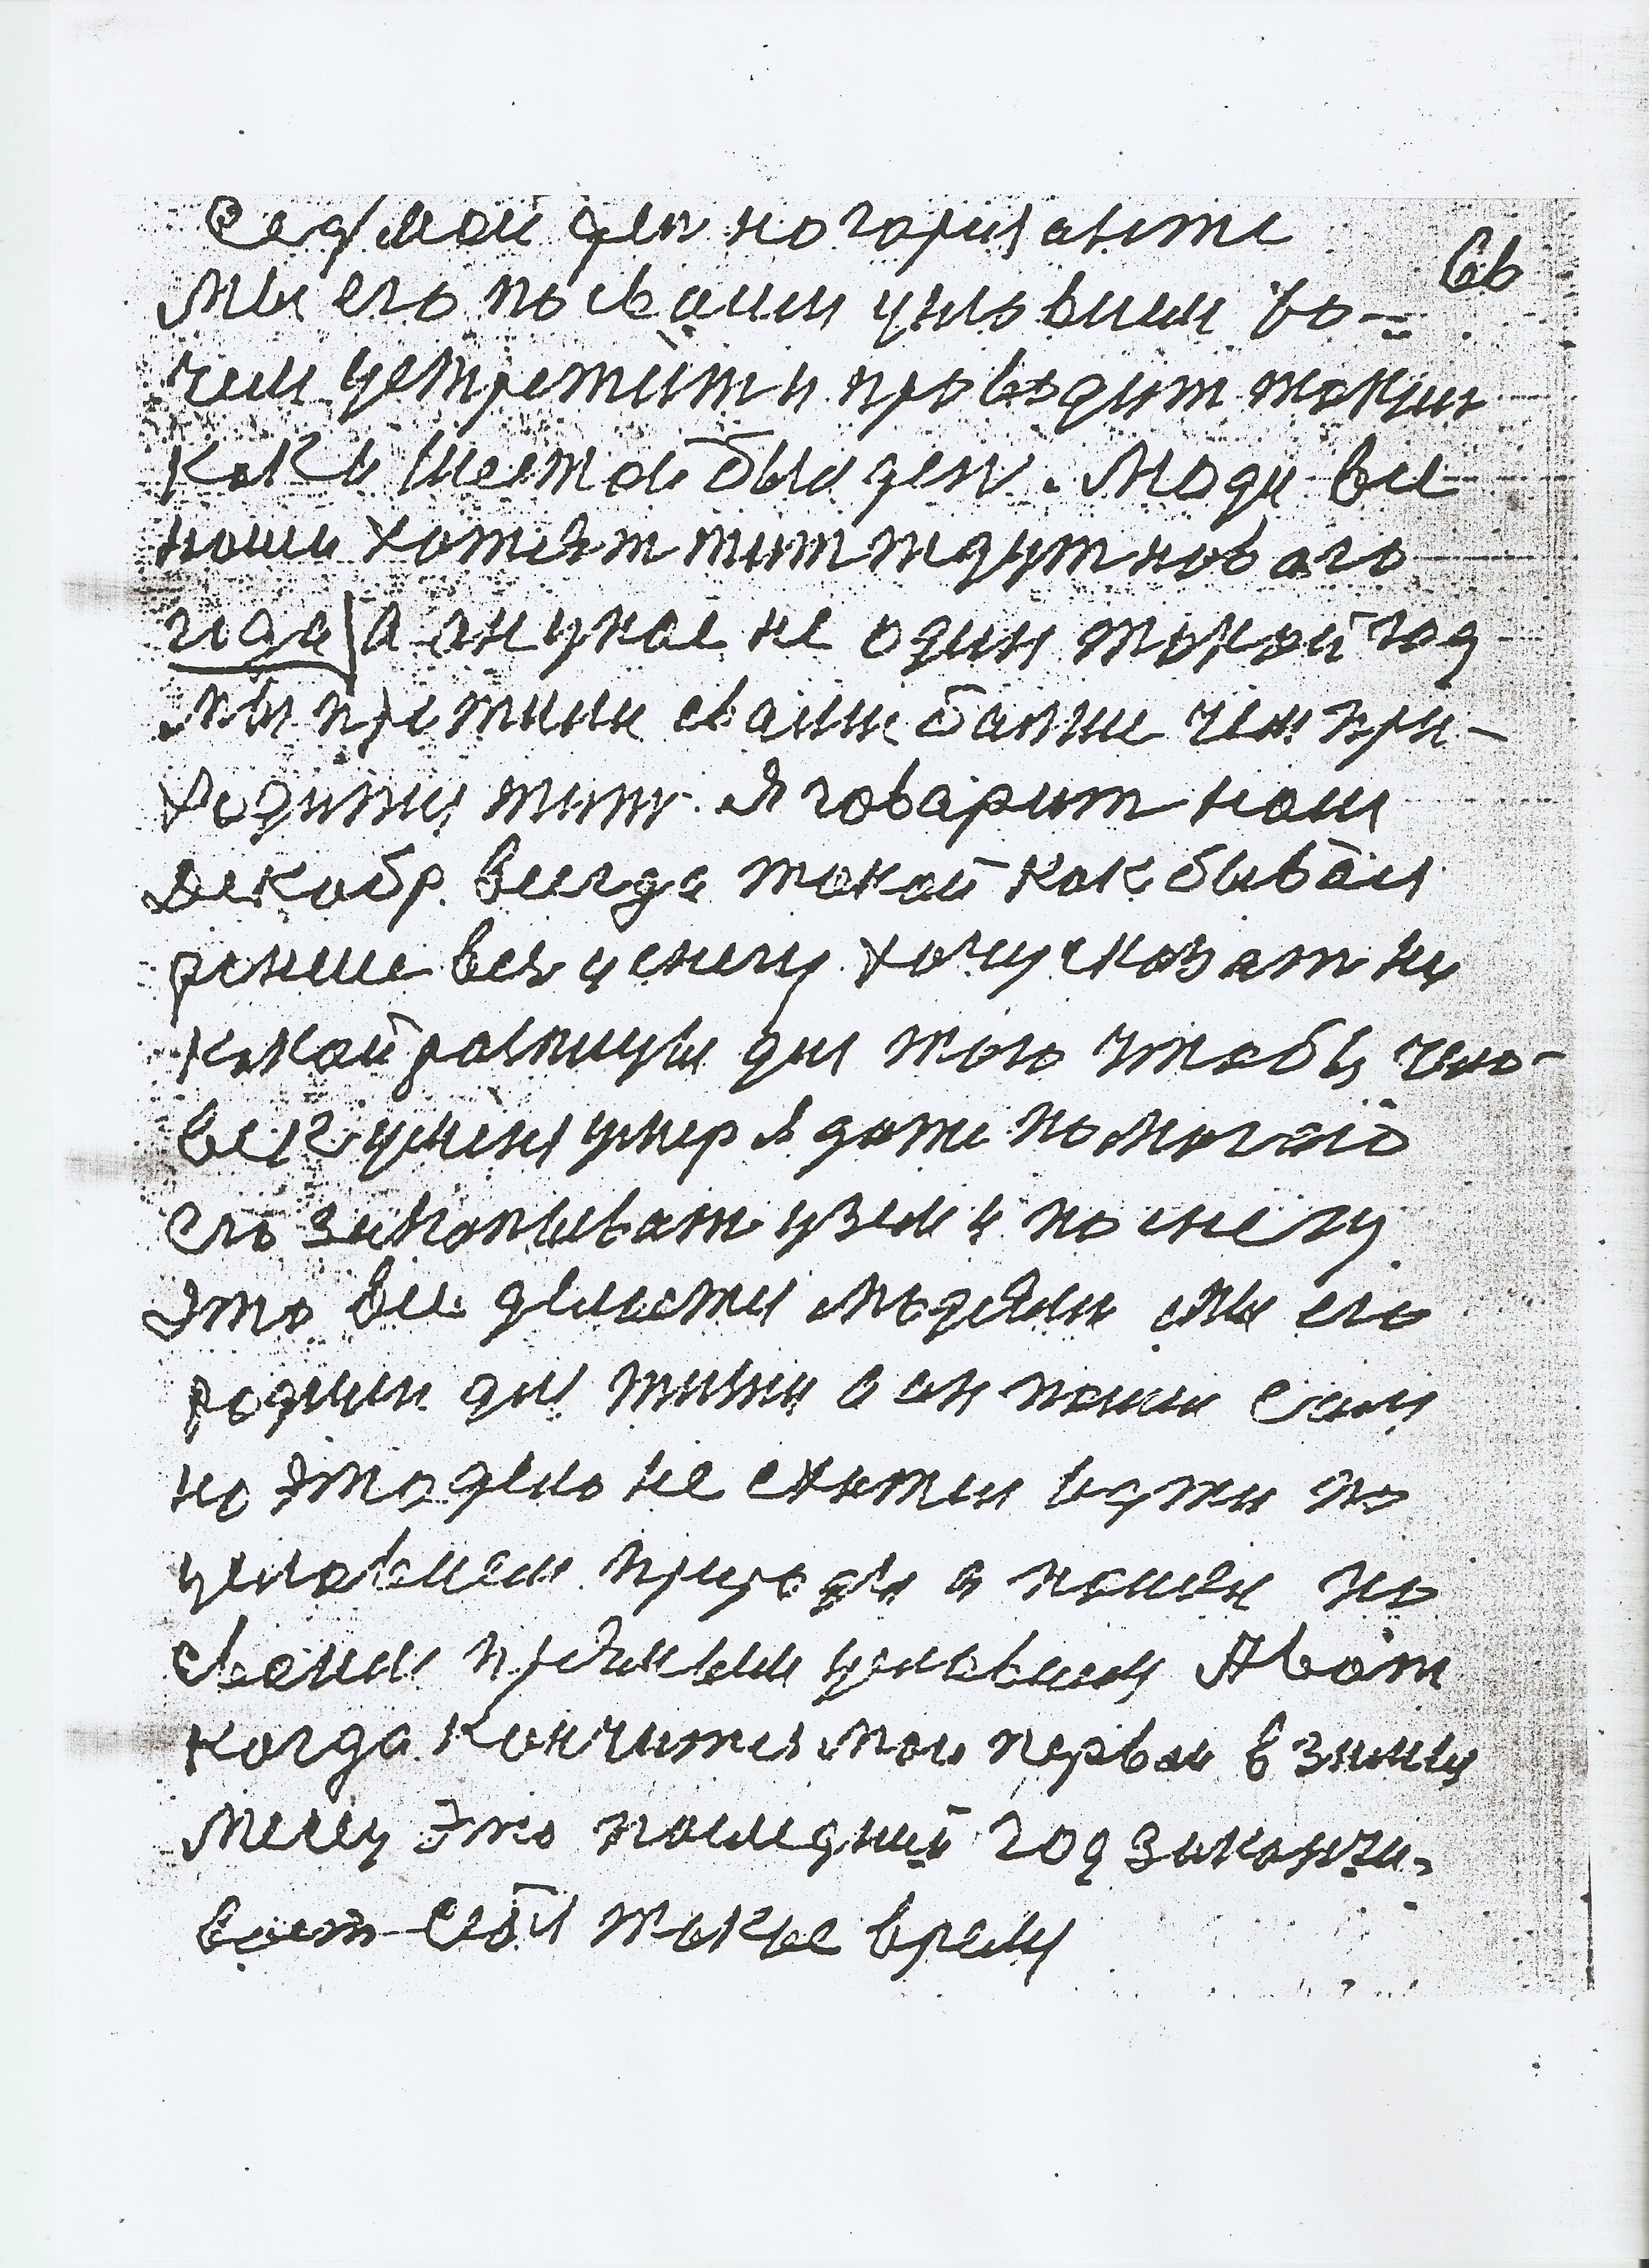 Седмой ден на гаризанте
66
Мы его по сваим условиям хо-
чем устретит и проводит таким
как и шестой был ден. Люди все
наши хотят жит ждут новаго
года а он у нас не один такой год
мы прожили сваим больше чем при-
ходится жит. Я говарит нам
декабр всегда такой как бывал
ранше вся у снегу хочу сказат ни
какой разницы для того чтобы чело-
век у меня умер я даже помогаю
его закапыват уземлю по снегу
Это все делается людям мы его
родили для жизни а он пашли
но это дело не схотел идти по
условием природы а пашел по
своим условиям А вот
когда кончится мой первая в зиму
месяц Это последний год заканчи-
вает свая такое время